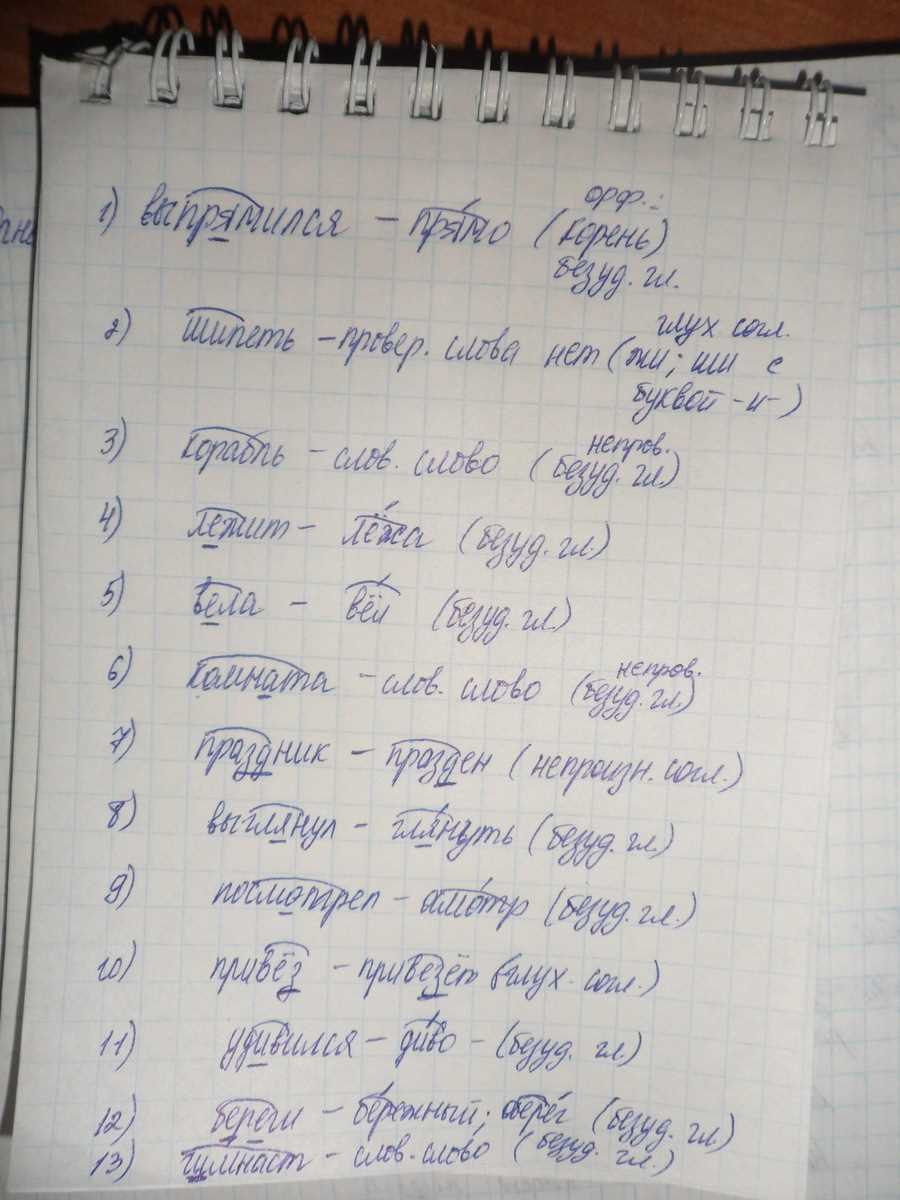 орф.:
1) выпрямился – прямо (корень)
безуд. гл.
глух согл.
2) шипеть – провер. слова нет (жи; ши с
буквой -и-)
непров.
3) корабль – слов. слово (безуд. гл.)
4) лежит – лёжа (безуд. гл.)
5) вела – вёл (безуд. гл.)
непров.
6) комната – слов. слово (безуд. гл.)
7) праздник – празден (непроизн. согл.)
8) выглянул – глянуть (безуд. гл.)
9) посмотрел – смотр (безуд. гл.)
10) привёз – привезёт (глух. согл.)
11) удивился – диво – (безуд. гл)
12) береги – бережный; оберег (безуд. гл)
13) гимнаст – слов. слово (безуд. гл.)